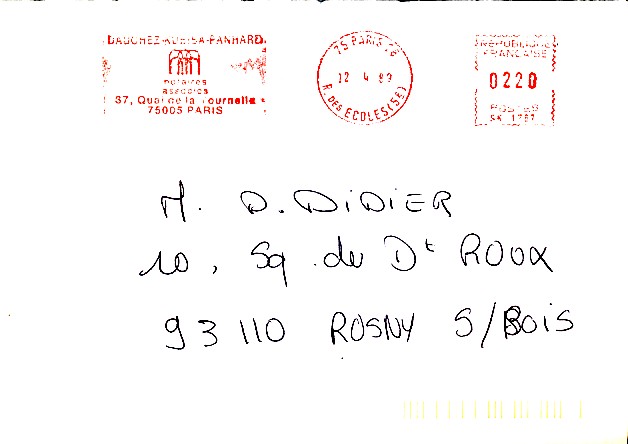 DAUCHEZ-KURISA-PANHARD
notaires
associés
37, Quai de la Tournelle
75005 PARIS
75 PARIS
12 4 89
R. DES ECOLES (5E)
REPUBLIQUE
FRANCAISE
0220
POSTES
SK 1787
M. D. DiDiER
10, Sq du Dt ROUX
93110 ROSNY S/BOIS